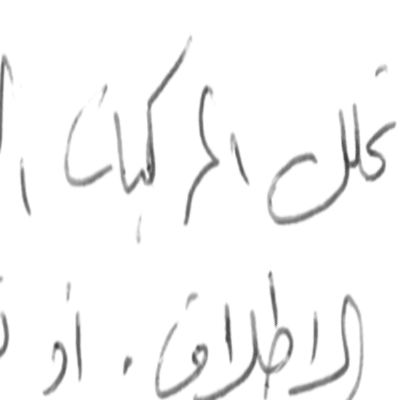 تحلل المركبات
الاطلاق . أو